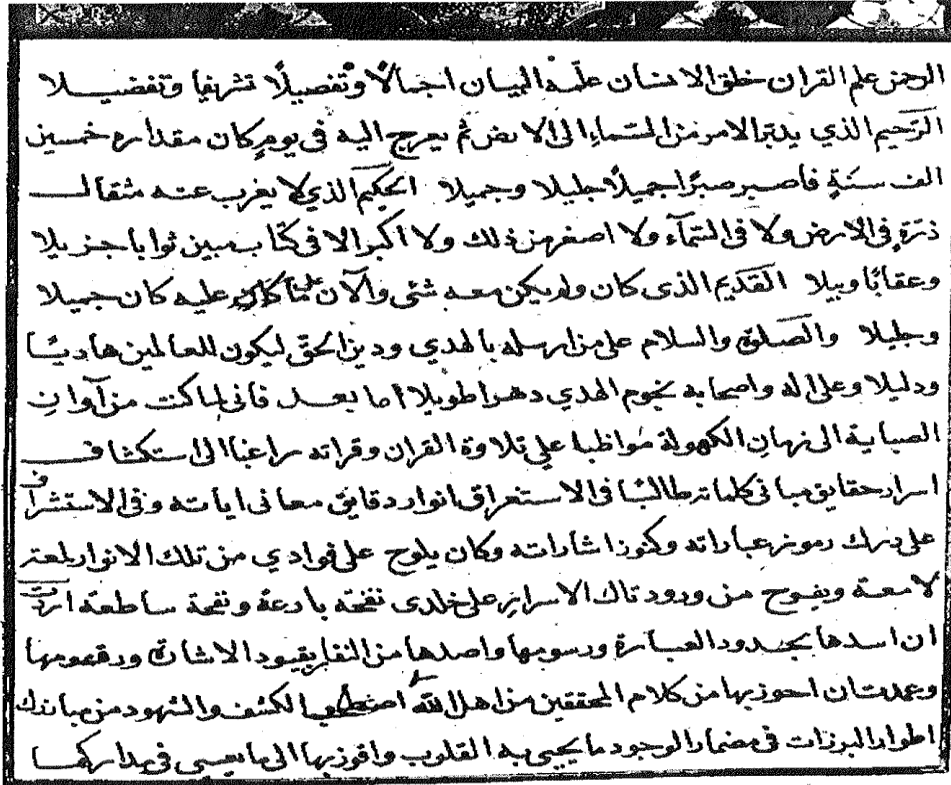 الرحمن علم القران خلق الانسان علمه البيان اجمالا وتفصيلًا تشريفا وتفضيلا
الرحيم الذي يدبر الامر من السماء الى الارض ثم يعرج اليه فى يومٍ كان مقداره خمسين
الف سنةٍ فاصبر صبرًا جميلًا جليلا وجميلا الحكيم الذي لا يغرب عنه مثقال
ذرّةٍ فى الارض ولا فى السّمآء ولا اصغر من ذلك ولا اكبر الا فى كتاب مبين ثوابا جزيلا
وعقابًا وبيلا القديم الذى كان ولم يكن معه شئ والآن على ما كان عليه كان جميلا
وجليلا والصلوة والسلام على من ارسله بالهدي ودين الحق ليكون للعالمين هاديًا
ودليلا وعلى اله واصحابه نجوم الهدي دهرا طويلا اما بعد فانى لما كنت من آوان
الصباية الى زمان الكهولة مواظبا على تلاوة القران وقراته راغبا الى استكشاف
اسرار حقايق مبانى كلماته طالبًا فى الاستغراق انوار دقايق معانى اياته وفى الاستشراف
على درك رموز عباراته وكنوز اشاراته وكان يلوح على فوادي من تلك الانوار لمعة
لامعة ويفوح من ورود تلك الاسرار على خلدى نفحة بادعة ونفحة ساطعة اردت
ان اسدها بحدود العبارة ورسومها واصدها من النفار بقيود الاشارة ورقومها
وعمدت ان احوز بها من كلام المحققين من اهل الله الكشف والشهود من
اطوار البرزات فى مضمار الوجود ما يحيى به القلوب وافوز بها الى ما يعيى فى مداركها